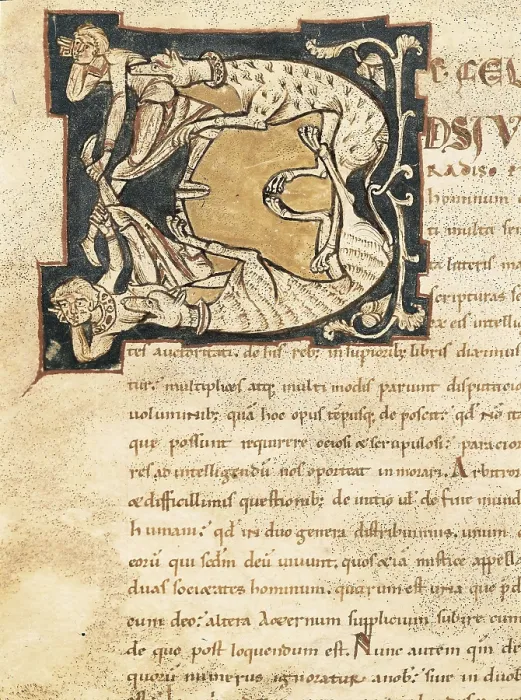 RADISO
hominum
ti multa sen
scripturas
ex eis intellu
tes auctoritati. de his reb; in supiorib; libris diximus
tur. multiplices atq; multi modis pariunt disputatio
voluminib; quã hoc opus tẽpusq; de poscit. qd nõ
que possunt requirere ociosi & scrupulosi. paracior
res ad intelligendũ nos oporteat in morari. Arbitror
& difficillimis questionib; de initio ul' de fine mund
humani. qd in duo genera distribuimus. unum
eorũ qui scdm deũ vivunt. quos &iã mistice appell
duas societates hominum. quarum est una que pd
cum deo. altera &ernum supplicium subire cum
de quo post loquendum est. Nunc autem qm de
quorũ numerus ignoratur a nob. sive in duob